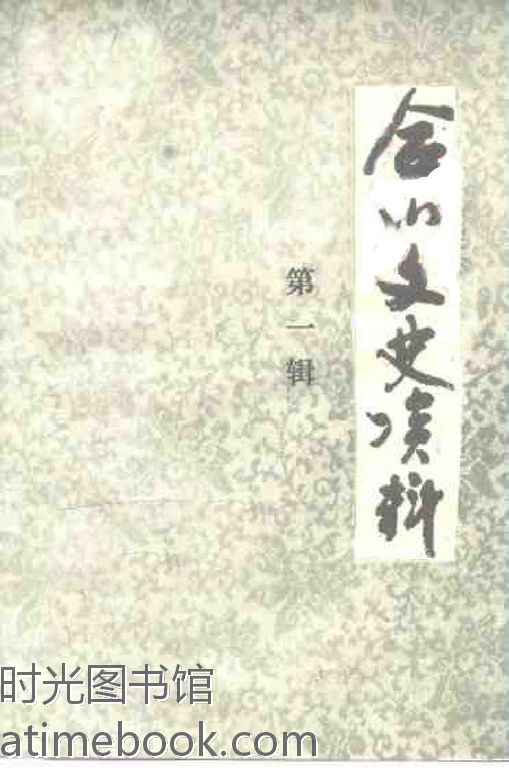 含山文史资料
第一辑
时光图书馆
atimebook.com